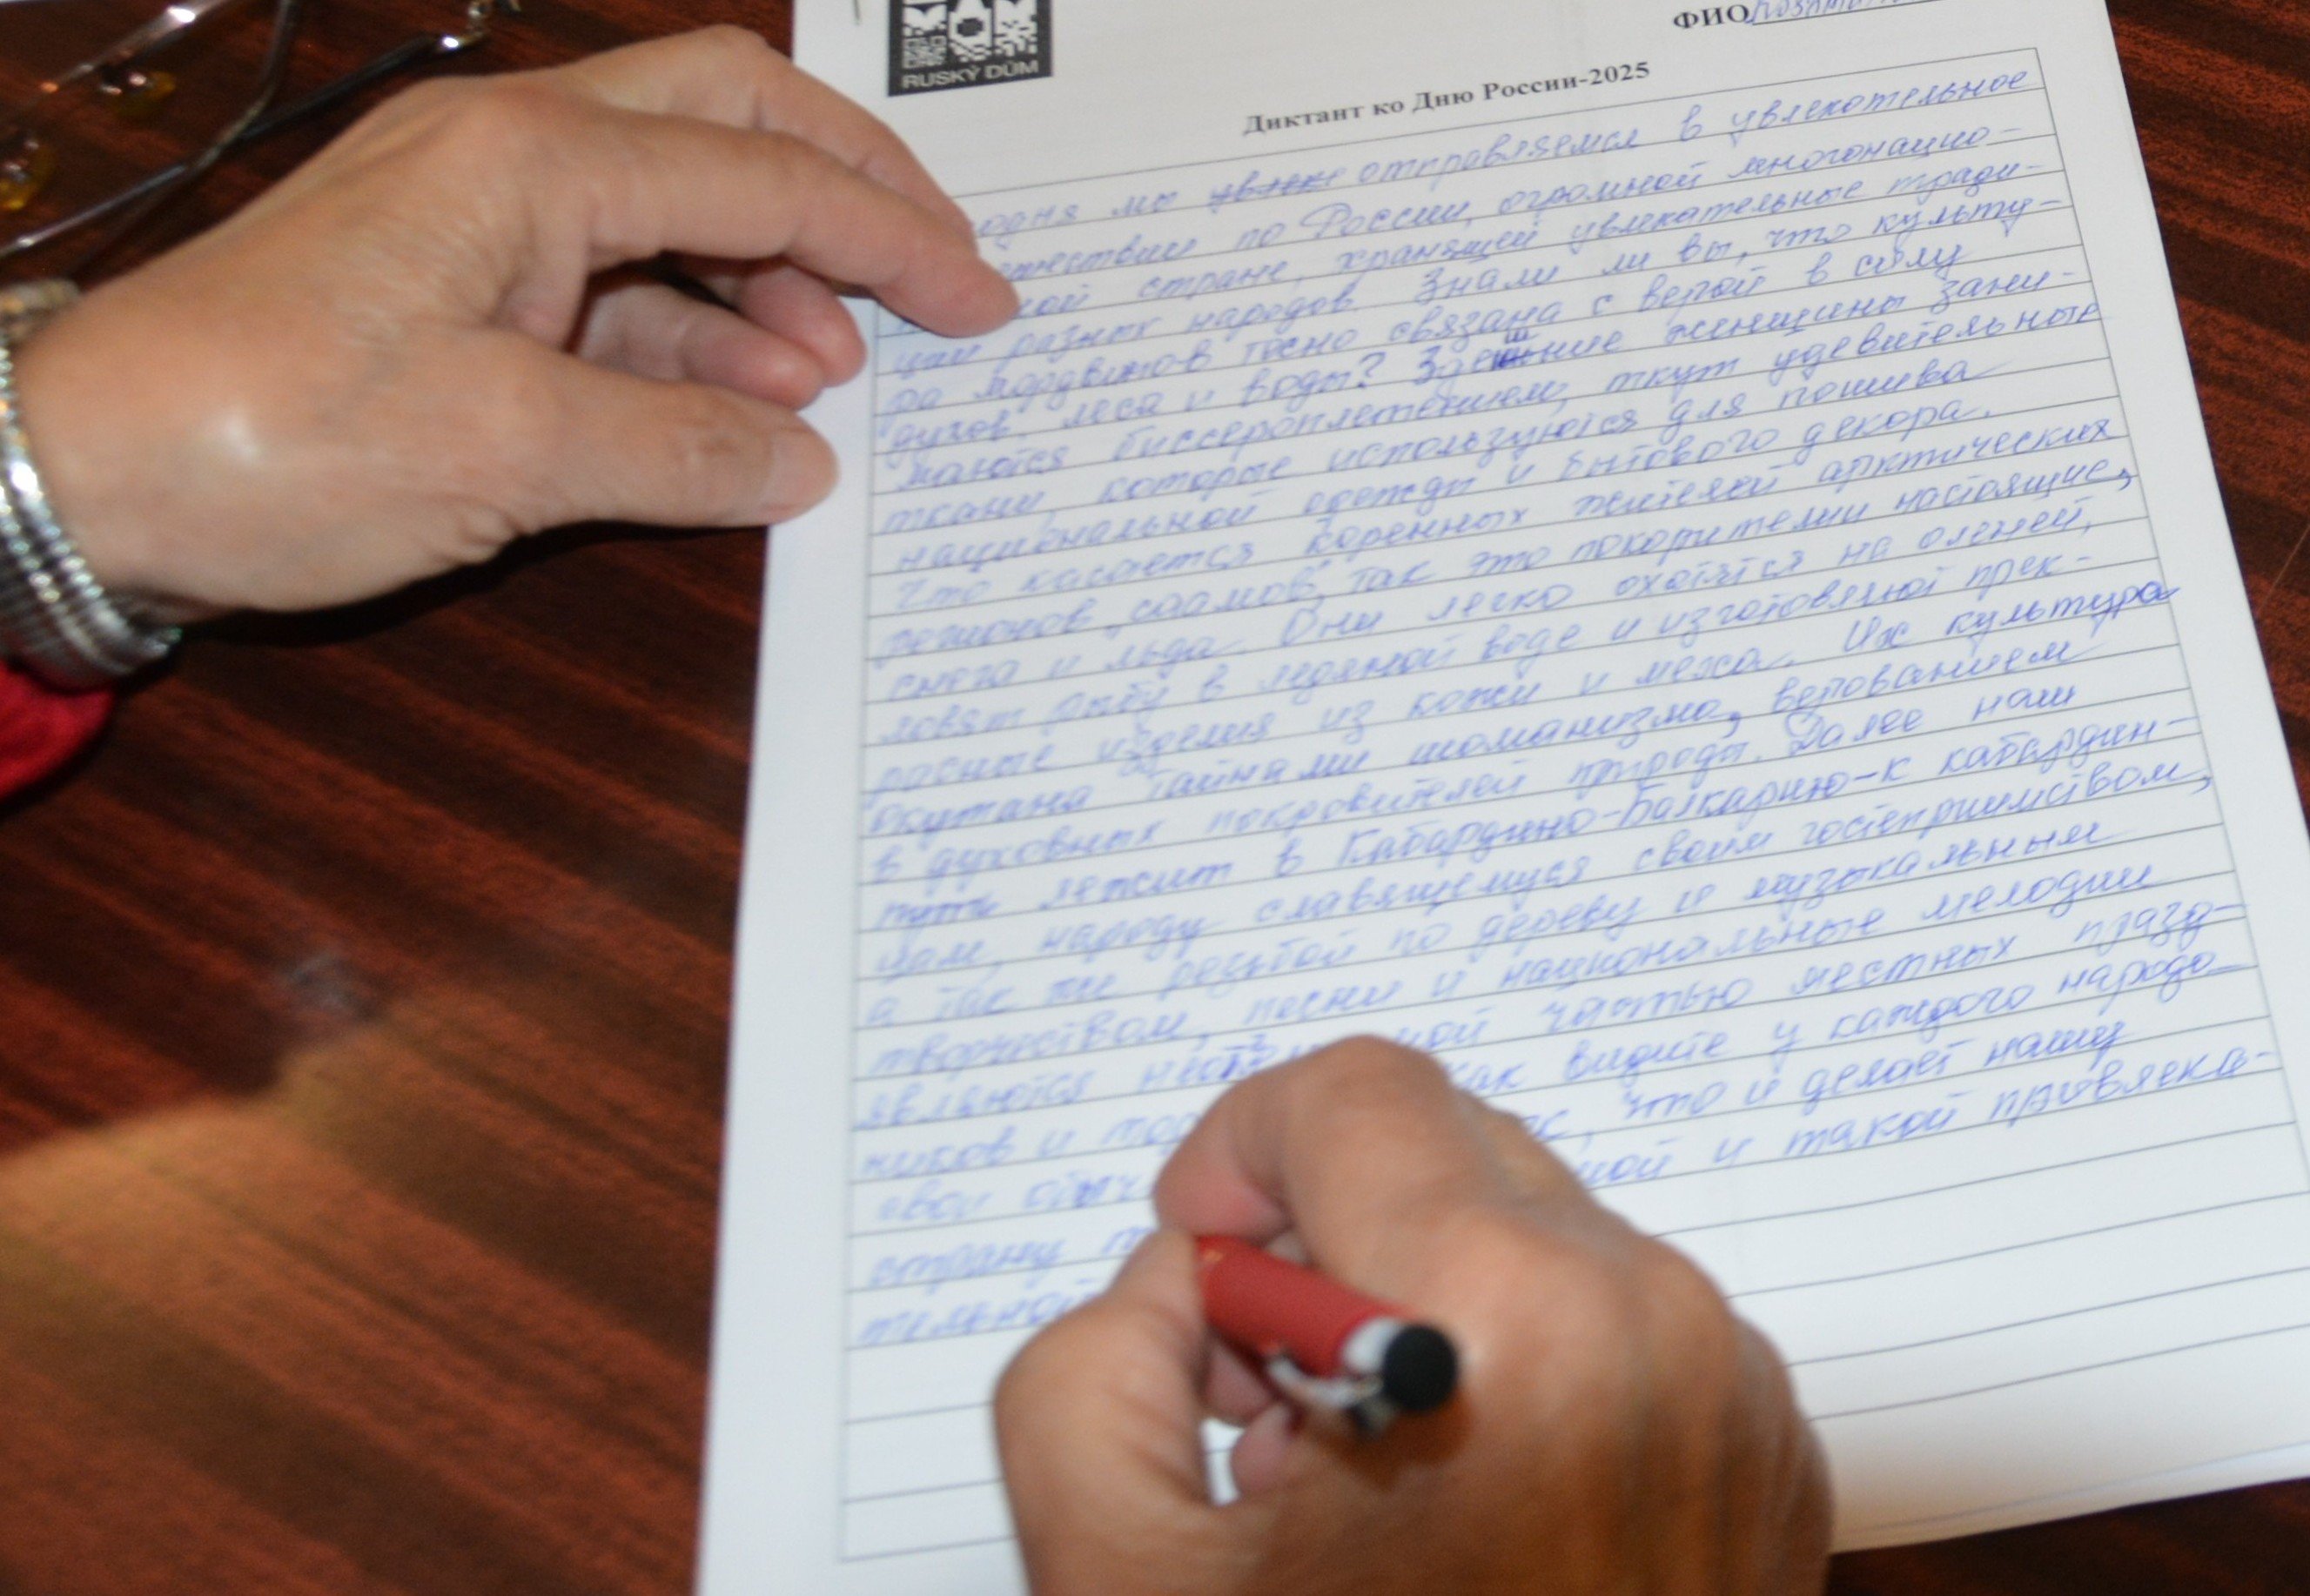 RUSKÝ DŮM
ФИО
Диктант ко Дню России-2025
мы увлек отправляемся в увлекательное
по России, огромной многонацио-
стране, хранящей увлекательные тради-
ции разных народов. Знали ли вы, что культу-
ра мордвинов тесно связана с верой в силу
духов, леса и воды? женщины зани-
маются биссероплетением, ткут удевительные
ткани, которые используются для пошива
национальной одежды и бытового декора.
Что касается коренных жителей арктических
регионов саамов, так это покорители настоящие,
снега и льда. Они легко охотятся на оленей,
ловят рыбу в ледяной воде и изготовляют прек-
расные изделия из кожи и меха. Их культура
окутана тайнами шоманизма, верованием
в духовных покровителей природы. Далее наш
путь лежит в Кабардино-Балкарию-к кабардин-
цам, народу славящемуся своим гостеприимством,
а так же резьбой по дереву и музыкальным
творчеством, песни и национальные мелодии
являются частью местных празд-
ников и как видите у каждого народа
свои что и делает нашу
страну и такой привлека-
тельной